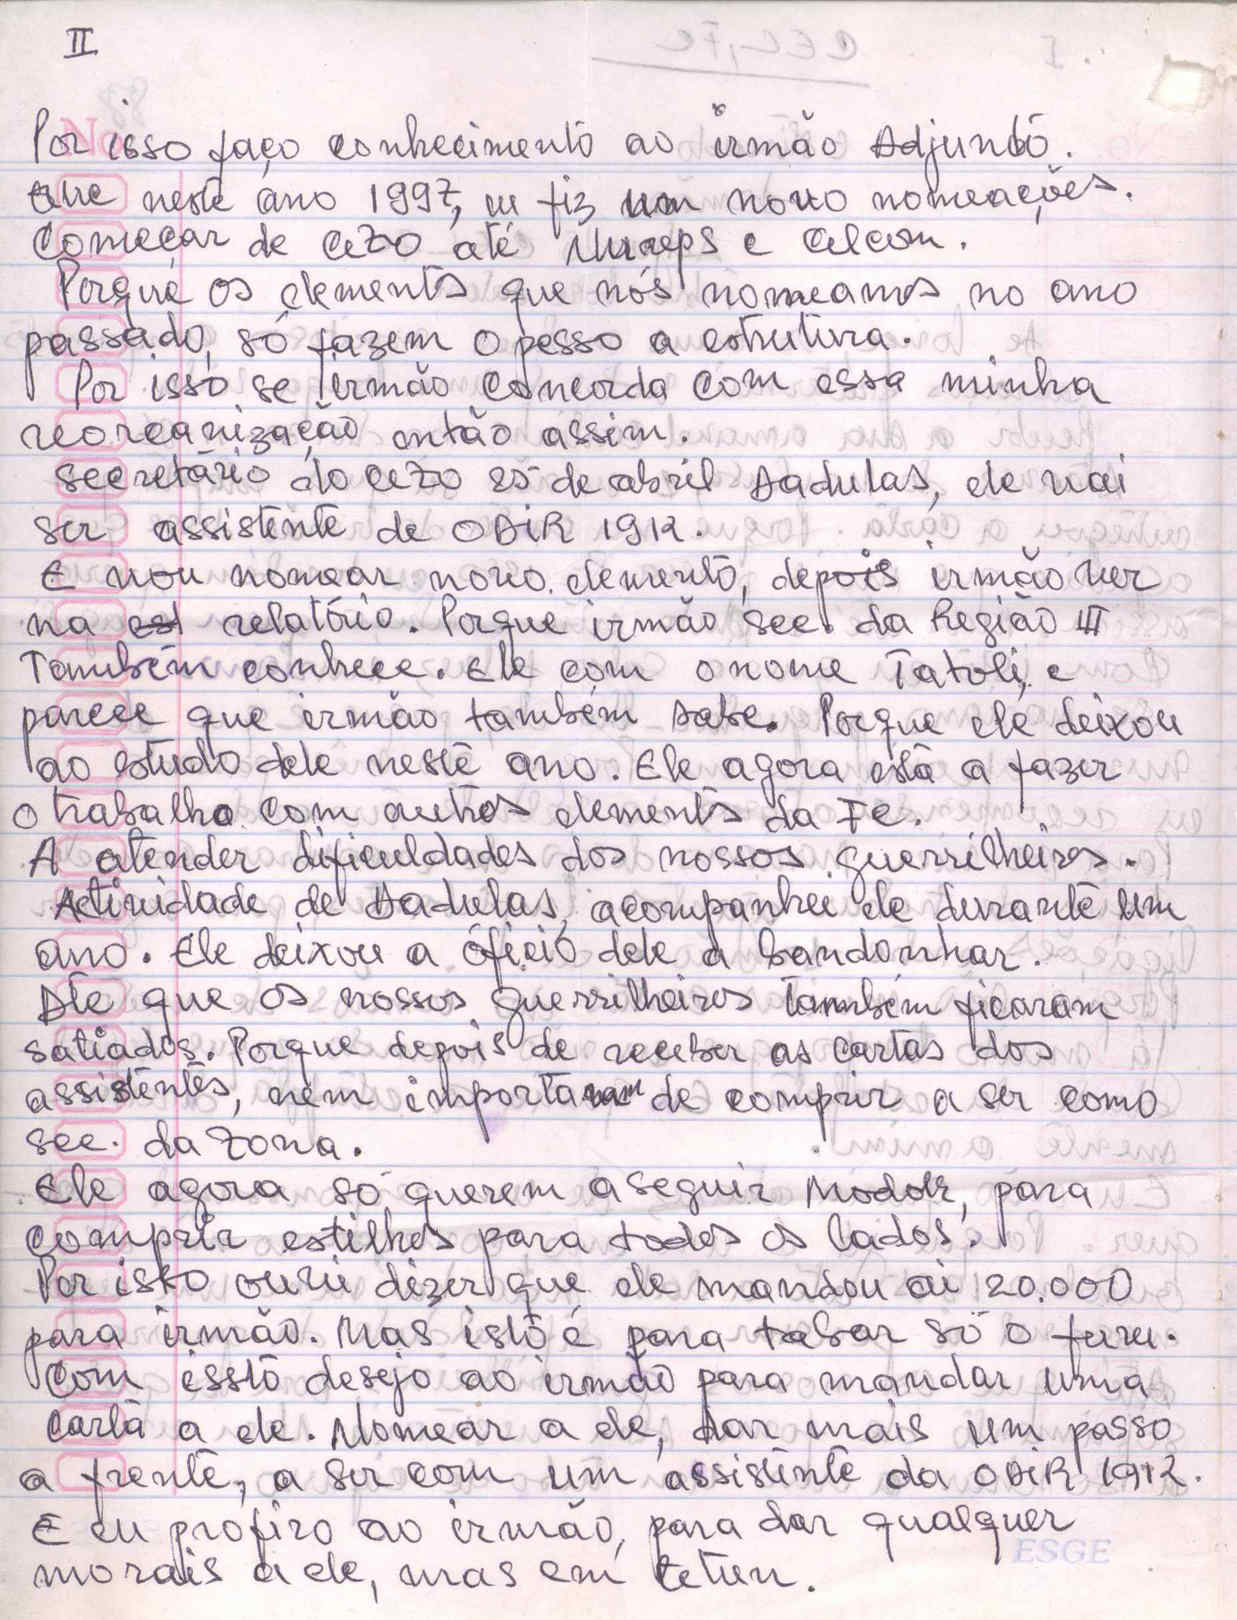 II
Por isso faço conhecimento ao irmão Adjunto.
que neste ano 1997, eu fiz um novo nomeações.
Começar de CEZO até Nureps e Celcom.
Porque os elementos que nós nomeamos no ano
passado, só fazem o pesso a estrutura.
Por isso se irmão concorda com essa minha
reorganização então assim.
Secretário do CEZO 25 de abril Dadulas, ele vai
ser assistente de ODIR 1912.
E vou nomear novo elemento, depois irmão ver
na relatório. Porque irmão sec. da Região III
Também conhece. Ele com o nome Tatoli, e
parece que irmão também sabe. Porque ele deixou
ao estudo dele neste ano. Ele agora está a fazer
o trabalho com outros elementos da FC.
A atender dificuldades dos nossos guerrilheiros.
Actividade de Dadulas, acompanhei ele durante um
ano. Ele deixou a ófício dele a bandonhar.
Até que os nossos guerrilheiros também ficaram
satiados. Porque depois de receber as cartas dos
assistentes, nem importavam de comprir a ser como
sec. da Zona.
Ele agora só querem a seguir Modok, para
comprir estilhos para todos os lados.
Por isto ouvi dizer que ele mandou ai 20.000
para irmão. Mas isto é para tabar só o furu.
Com issto desejo ao irmão para mandar uma
carta a ele. Nomear a ele, dar mais um passo
a frente, a ser com um assistente da ODIR 1912.
E eu profiro ao irmão, para dar qualquer
morais a ele, mas em tetun.
ESGE